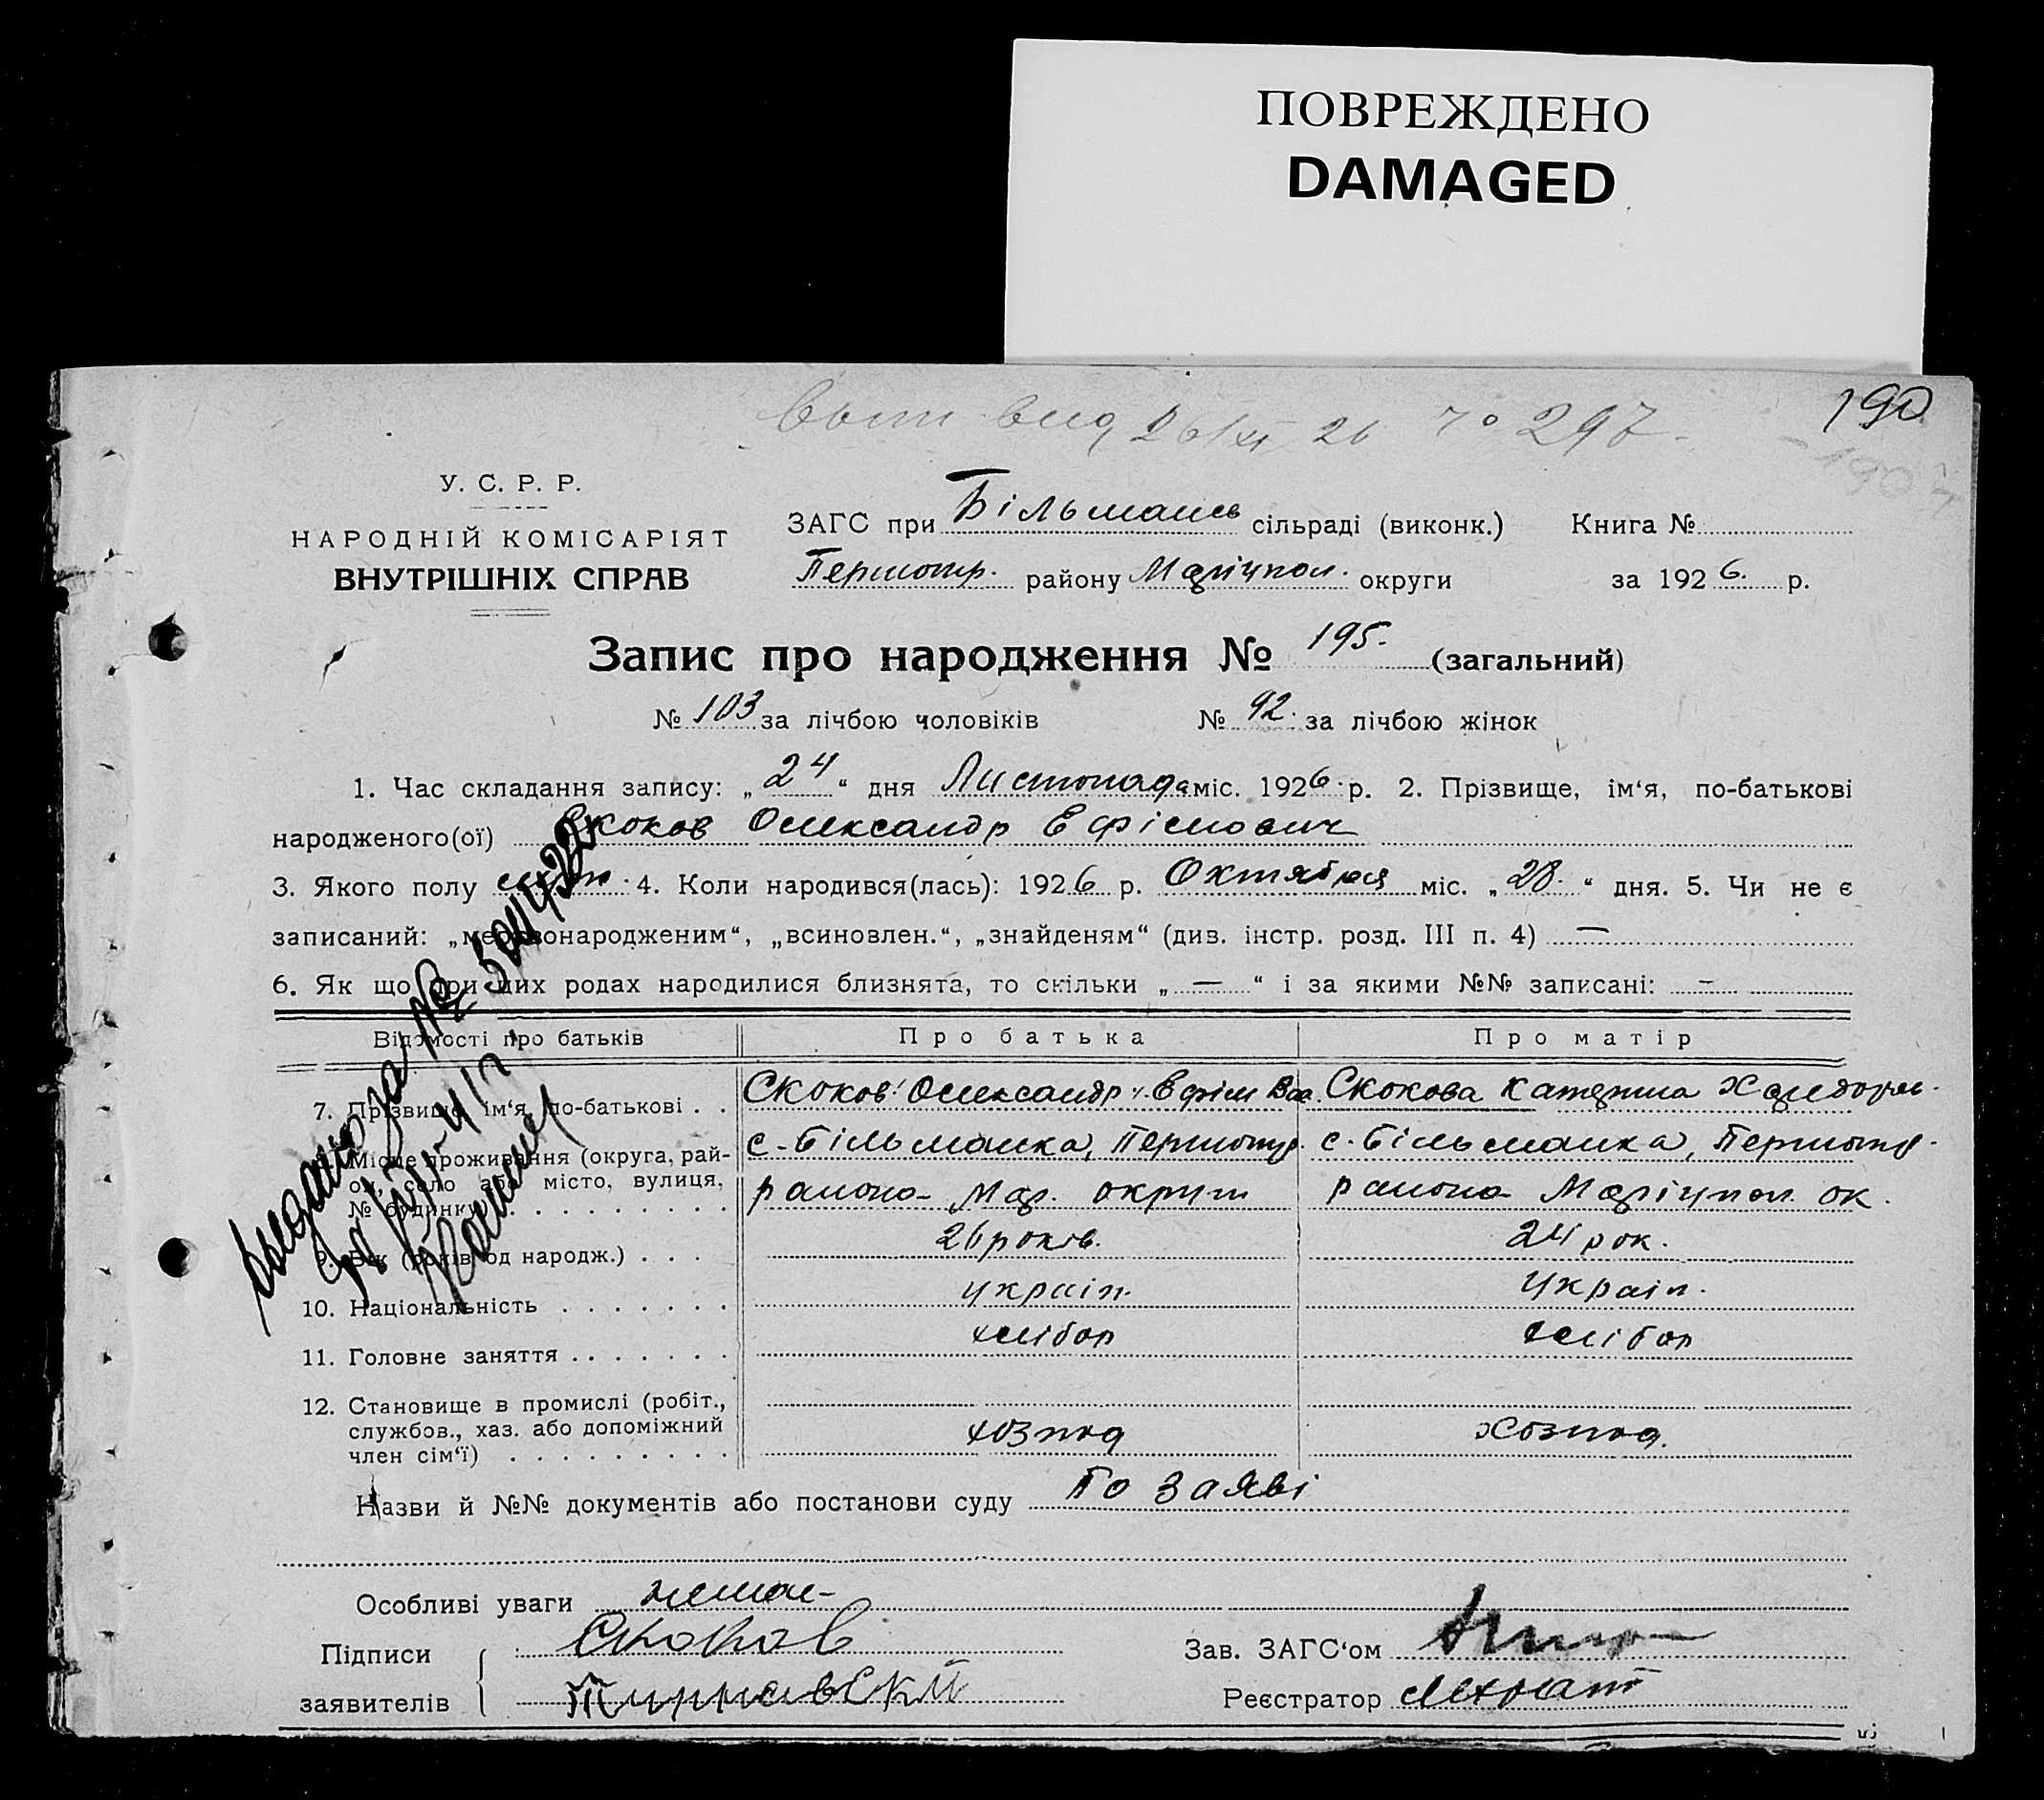 ПОВРЕЖДЕНО
DAMAGED
190
У. С. Р. Р.
НАРОДНІЙ КОМІСАРІЯТ
ВНУТРІШНІХ СПРАВ
ЗАГС при Більмансь сільраді (виконк.) Книга №
Першотр. району Маріупол. округи за 1926. р.
Запис про народження № 195. (загальний)
№ 103 за лічбою чоловіків № 92. за лічбою жінок
1. Час складання запису: „24“ дня Листопада міс. 1926. р. 2. Прізвище, ім‘я, по-батькові
народженого(ої) Скоков Олександр Ефімович
3. Якого полу 4. Коли народився(лась): 1926 р. Октября міс. „28.“ дня. 5. Чи не є
записаний: „мертвонародженим“, „всиновлен.“, „знайденям“ (див. інстр. розд. III п. 4) —
6. Як що при цих родах народилися близнята, то скільки „—“ і за якими №№ записані: –
Відомості про батьків Про батька Про матір
7. Прізвище, ім‘я, по-батькові . . Скоков Олександр Ефім Вас. Скокова Катерина
8. Місце проживання (округа, рай- с. Більманка, Першотр. с. Більманка, Першотр.
он, село або місто, вулиця, района Мар. округи района Маріупол. ок.
№ будинку) . . . . . . . . .
9. Вік (років од народж.) . . . 26 років. 24 рок.
10. Національність . . . . . . . україн. україн.
11. Головне заняття . . . . . . . хлібор хлібор
12. Становище в промислі (робіт.,
службов., хаз. або допоміжний хозпод хозпод.
член сім‘ї) . . . . . . . . .
Назви й №№ документів або постанови суду По заяві
Особливі уваги немае
Підписи Скоков Зав. ЗАГС‘ом
заявителів Реєстратор